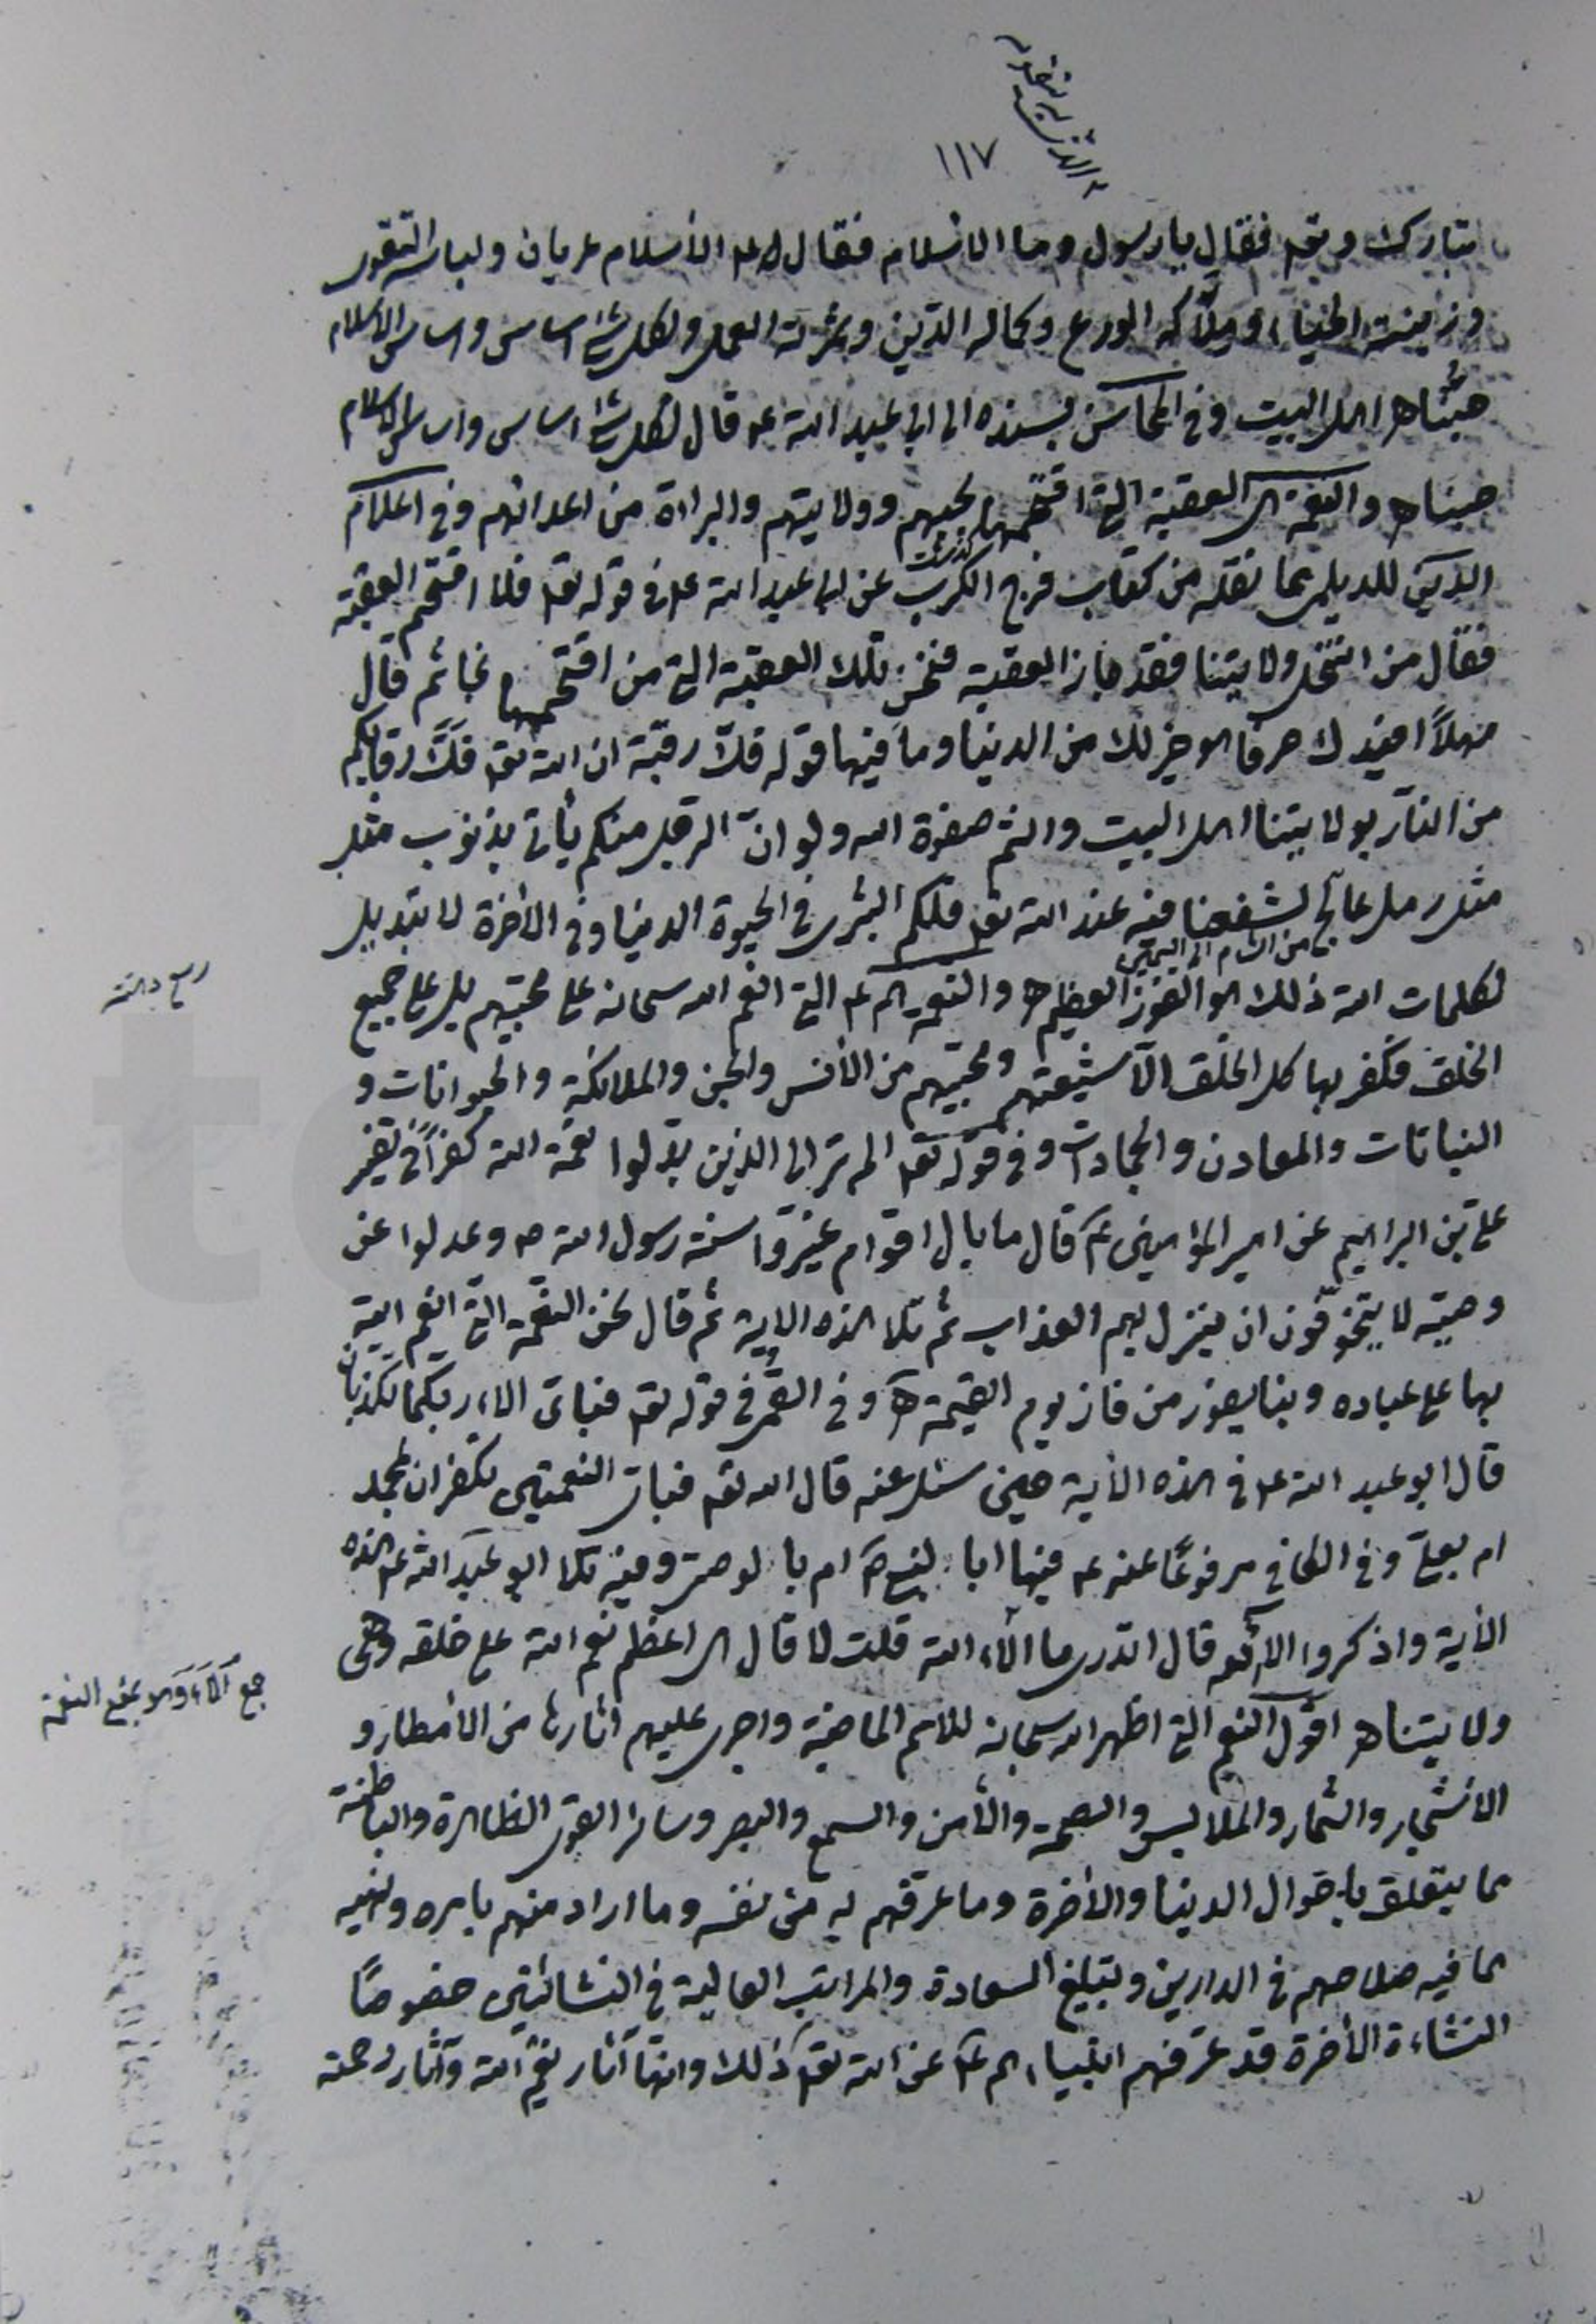 ١١٧
تبارك وتعه فقال يا رسول وما الاسلام فقال له عه الأسلام عريان ولباسه التقوى
وزينته الحياء وملاكه الورع وكماله الدّين وثمرته العمل ولكل شئ اساس واساس الاسلام
حبّنا اهل البيت وفى المحاسن بسنده الى ابى عبد الله عه قال لكل شئ اساس واساس الاسلام
حبنا والنعمة العقبة التى اقتحمها بحبهم وولايتهم والبراءة من اعدائهم وفى اعلام
الدين للديلمى مما نقله من كتاب فرج الكرب عن ابى عبد الله عه فى قوله تعه فلا اقتحم العقبة
فقال من انتحل ولايتنا فقد جاز العقبة فنحن تلك العقبة التى من اقتحمها نجا ثم قال
مهلاً افيدك حرفا هو خير لك من الدنيا وما فيها قوله فكّ رقبة ان الله تعه فكّ رقابكم
من النار بولايتنا اهل البيت وانتم صفوة الله ولو انّ الرجل منكم يأتى بذنوب مثل
مثل رمل عالج لشفعنا فيه عند الله تعه فلكم البشرى فى الحيوة الدنيا وفى الأخرة لا تبديل
من الشام الى اليمن
لكلمات الله ذلك هو الفوز العظيم والنعمة هم عه التى انعم الله سبحانه على محبتهم بل على جميع
الخلق فكفر بها كل الخلق الّا شيعتهم ومحبيهم من الأنس والجن والملائكة والحيوانات و
النباتات والمعادن والجمادات وفى قوله تعه الم تر الى الذين بدلوا نعمة الله كفراً فى تفسير
على بن ابراهيم عن امير المؤمنين عم قال ما بال اقوام غيّروا سنة رسول الله ص وعدلوا عن
وصيّه لا يتخوّفون ان ينزل بهم العذاب ثم تلا هذه الاية ثم قال نحن النعمة التى انعم الله
بها على عباده وبنا يفوز من فاز يوم القيمة وفى القمى فى قوله تعه فباى الاء ربكما تكذبان
قال ابو عبد الله عه فى هذه الأية حين سئل عنه قال الله تعه فباى النعمتين تكفران بمحمد
ام بعلى وفى الكافى مرفوعًا عنه عه فيها ابا لنبى ص ام بالوصى وفيه تلا ابو عبد الله عه هذه
الأية واذكروا الاء الله قال اتدرى ما الّاء الله قلت لا قال هى اعظم نعم الله على خلقه وهى
جمع آلاء وهو بمعنى النعمة
ولايتنا اقول النعم التى اظهر الله سبحانه للأمم الماضية واجرى عليهم اثارها من الأمطار و
الأشجار والثمار والملابس والصحة والأمن والسمع والبصر وسائر القوى الظاهرة والباطنة
مما يتعلق باحوال الدنيا والأخرة وما عرّفهم به من نفسه وما اراد منهم بامره ونهيه
مما فيه صلاحهم فى الدارين وتبليغ السعادة والمراتب العالية فى النشأتين خصوصًا
النشاءة الأخرة قد عرّفهم انبياءهم عم عن الله تعه ذلك وانّها آثار نعم الله وآثار رحمته